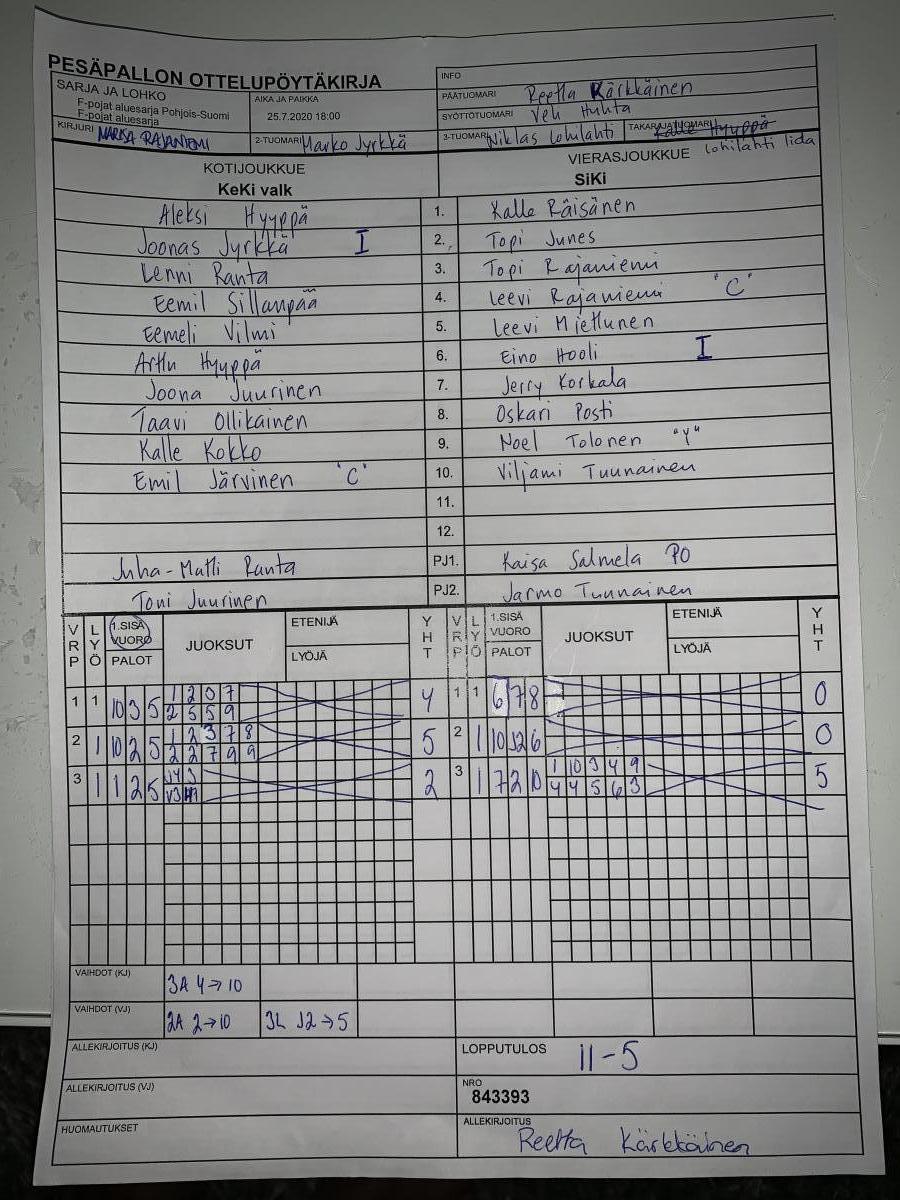 PESÄPALLON OTTELUPÖYTÄKIRJA
INFO
SARJA JA LOHKO
F-pojat aluesarja Pohjois-Suomi
F-pojat aluesarja
AIKA JA PAIKKA
25.7.2020 18:00
PÄÄTUOMARI Reetta Kärkkäinen
SYÖTTÖTUOMARI Veli Huhta
KIRJURI MARIKA RAJANIEMI
2-TUOMARI Marko Jyrkkä
3-TUOMARI Niklas Lohilahti
TAKARAJATUOMARI Kalle Hyyppä
Lohilahti Iida
KOTIJOUKKUE
KeKi valk
VIERASJOUKKUE
SiKi
Aleksi Hyyppä 1. Kalle Räisänen
Joonas Jyrkkä I 2. Topi Junes
Lenni Ranta 3. Topi Rajaniemi
Eemil Sillanpää 4. Leevi Rajaniemi "C"
Eemeli Vilmi 5. Leevi Miettunen
Arttu Hyyppä 6. Eino Hooli I
Joona Juurinen 7. Jerry Korkala
Taavi Ollikainen 8. Oskari Posti
Kalle Kokko 9. Noel Tolonen "Y"
Emil Järvinen "C" 10. Viljami Tuunainen
11.
12.
Juha-Matti Ranta PJ1. Kaisa Salmela PO
Toni Juurinen PJ2. Jarmo Tuunainen
VRP LYÖ 1.SISÄ VUORO PALOT JUOKSUT ETENIJÄ LYÖJÄ YHT VRP LYÖ 1.SISÄ VUORO PALOT JUOKSUT ETENIJÄ LYÖJÄ YHT
1 1 10 3 5 1 2 0 7 4 1 1 6 7 8 0
2 5 5 9
2 1 10 2 5 1 2 3 7 8 5 2 1 10 J2 6 0
2 2 7 9 9
3 1 1 2 5 J4 3 2 3 1 7 2 10 1 10 3 4 9 5
V3 4 4 5 6 3
VAIHDOT (KJ) 3A 4→10
VAIHDOT (VJ) 2A 2→10 3L J2→5
ALLEKIRJOITUS (KJ)
LOPPUTULOS 11-5
ALLEKIRJOITUS (VJ)
NRO
843393
HUOMAUTUKSET
ALLEKIRJOITUS
Reetta Kärkkäinen